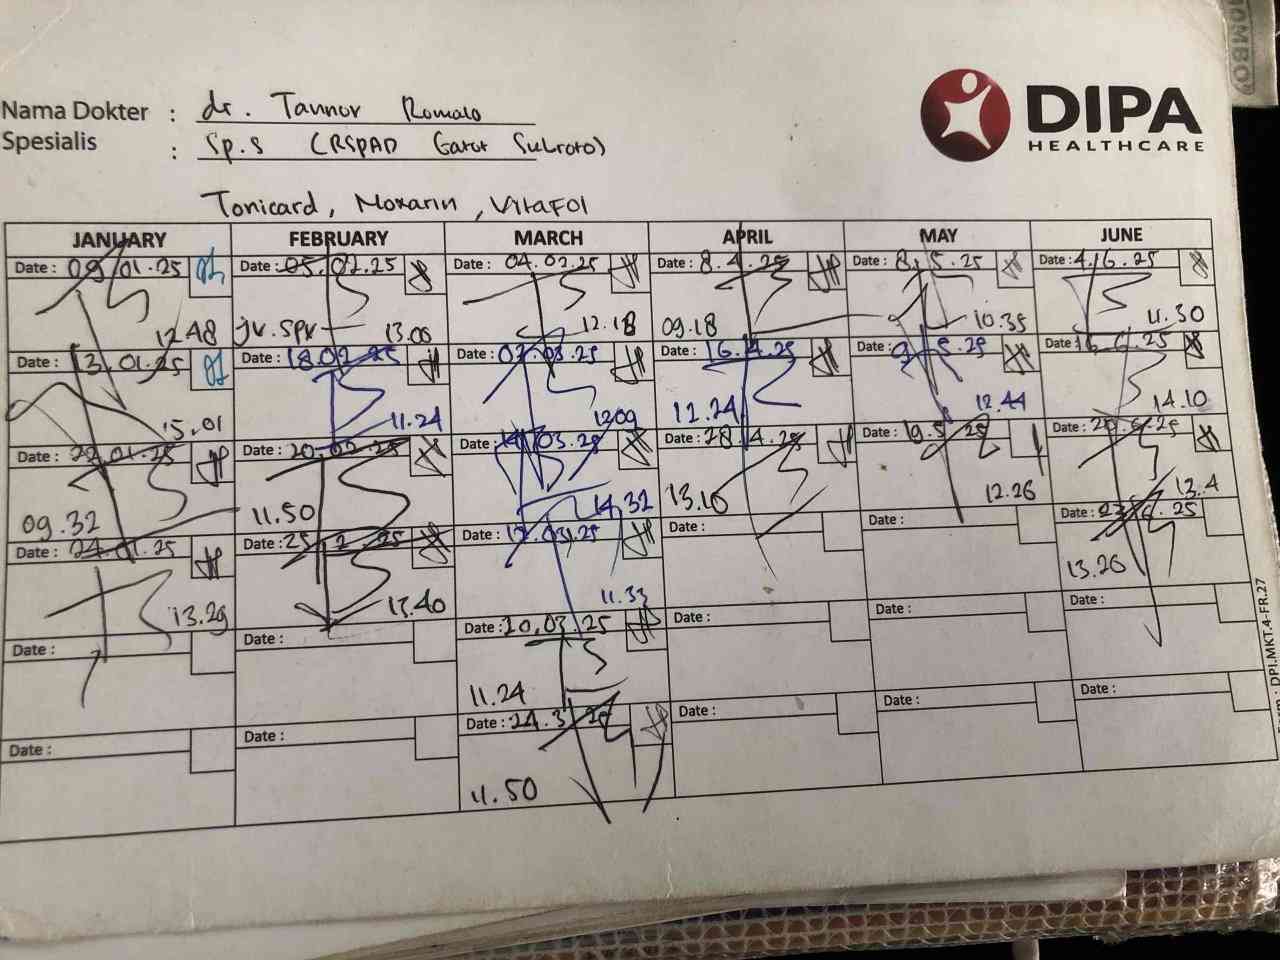 JOMBO
DIPA
HEALTHCARE
Nama Dokter : dr. Tannov Romalo
Spesialis : Sp.S (RSPAD Gatot Subroto)
Tonicard, Moxarin, VitaFol
JANUARY FEBRUARY MARCH APRIL MAY JUNE
Date : 09/01.25 Date : 05.02.25 Date : 04.02.25 Date : 8.4.25 Date : 8.5.25 Date : 4.6.25
12.48 13.00 12.18 09.18 10.35 11.30
Date : 13.01.25 Date : 18.02.25 Date : 07.03.25 Date : 16.4.25 Date : 9.5.25 Date : 16.6.25
15.01 11.24 1209 12.24 12.44 14.10
Date : 22.01.25 Date : 20.02.25 Date : 11.03.25 Date : 28.4.25 Date : 19.5.25 Date : 20.6.25
09.32 11.50 14.32 13.10 12.26 13.4
Date : 24.01.25 Date : 25.2.25 Date : 17.03.25 Date : Date : Date : 23.6.25
13.29 13.40 11.33 13.26
Date : Date : Date : 20.03.25 Date : Date : Date :
11.24
Date : Date : Date : 24.3.25 Date : Date : Date :
11.50
DPI.MKT.4-FR.27